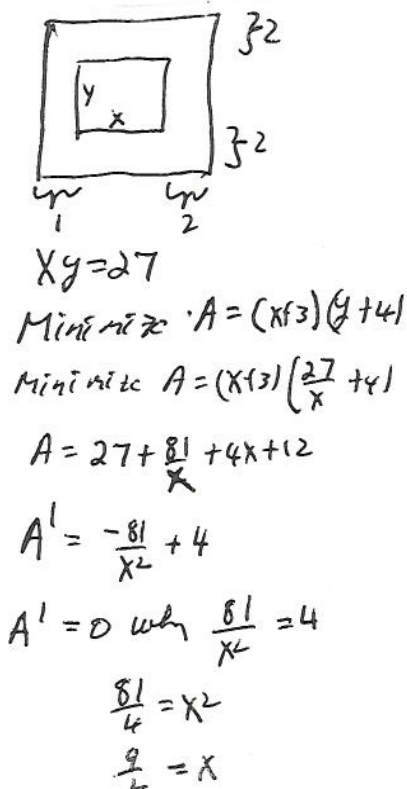 }2
y
x
}2
1 2
Xy=27
Minimize · A = (x+3)(y+4)
Minimize A = (x+3)(27/x + 4)
A = 27 + 81/x + 4x + 12
A' = -81/x² + 4
A' = 0 when 81/x² = 4
81/4 = x²
9/ = x